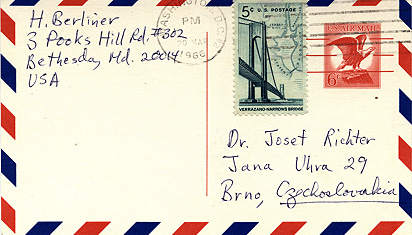 H. Berliner
3 Pooks Hill Rd. #302
Bethesda, Md. 20014
USA
WASHINGTON, D.C.
PM
1966
5¢ U.S. POSTAGE
VERRAZANO-NARROWS BRIDGE
U.S. AIR MAIL
6¢
Dr. Josef Richter
Jana Uhra 29
Brno, Czechoslovakia